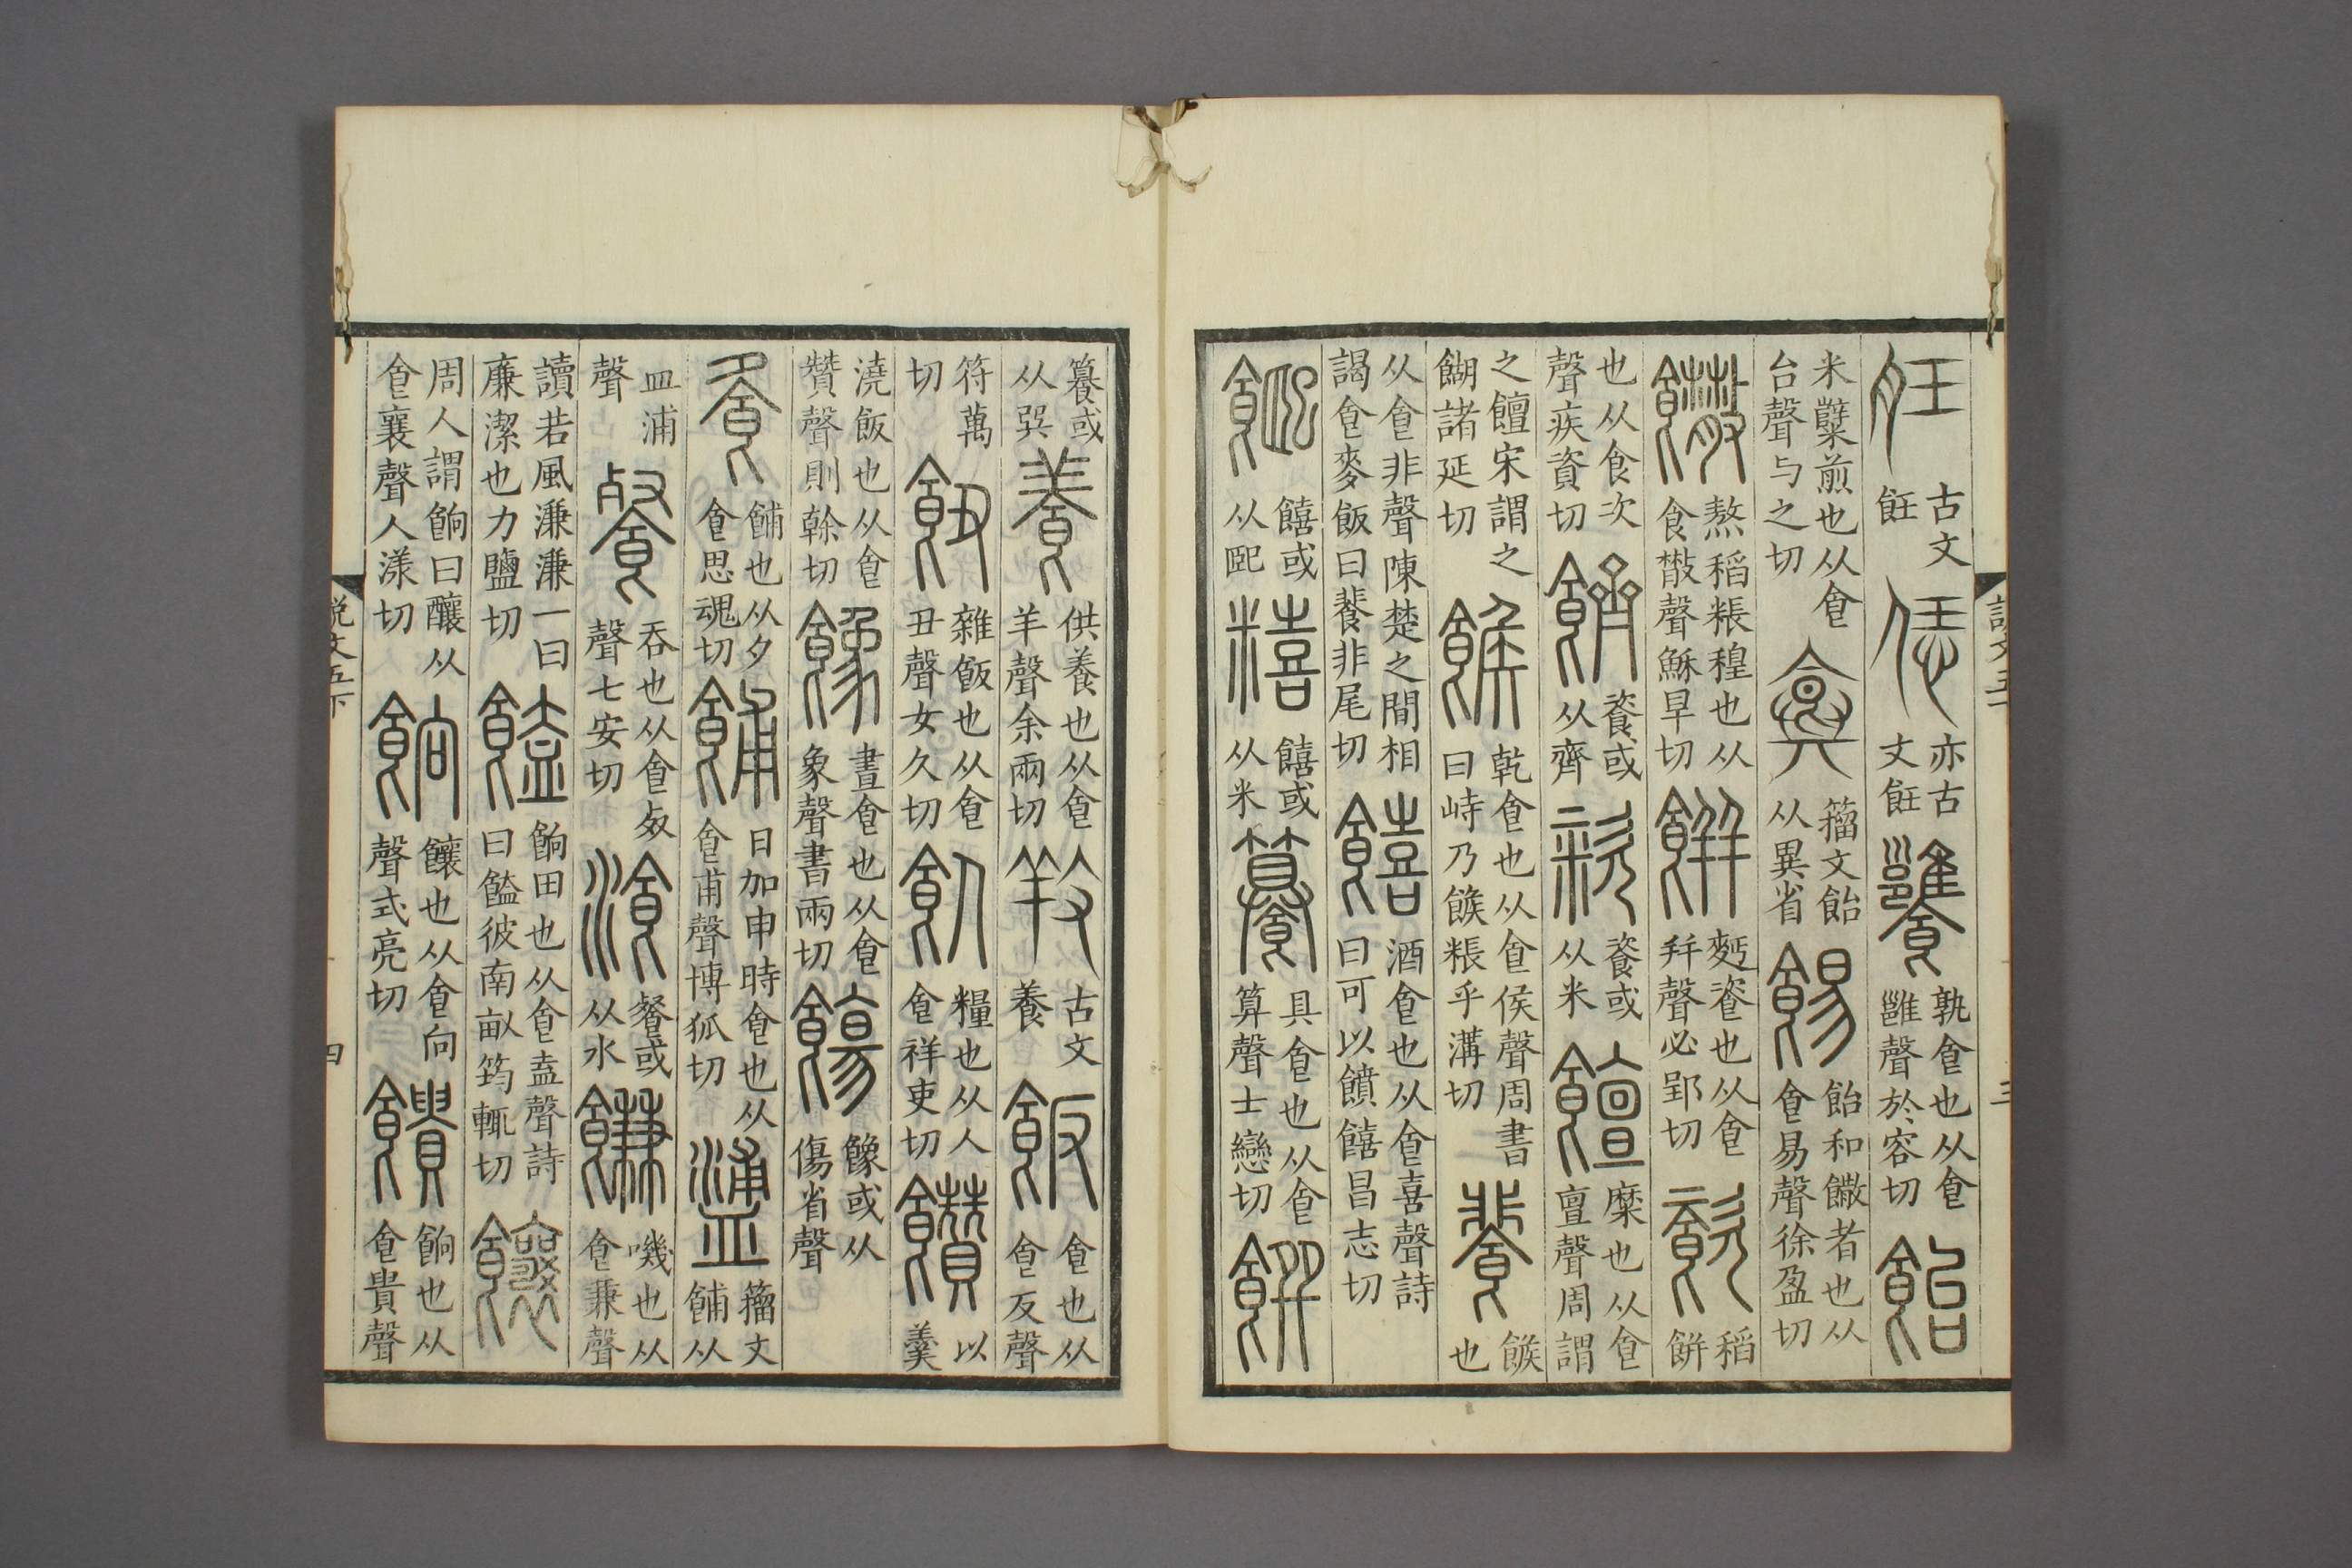 古文飪 恁 亦古文飪 饔 孰食也从食雝聲於容切 飴
米糱煎也从食台聲与之切 籒文飴从異省 餳 飴和饊者也从食昜聲徐盈切
饊 熬稻粻䅣也从食㪔聲穌旱切 餠 麪餈也从食幷聲必郢切 餈 稻餠
也从食次聲疾資切 餈或从齊 粢 餈或从米 饘 糜也从食亶聲周謂
之饘宋謂之餬諸延切 餱 乾食也从食侯聲周書曰峙乃餱粻乎溝切 餥 餱也
从食非聲陳楚之間相謁食麥飯曰餥非尾切 饎 酒食也从食喜聲詩曰可以饙饎昌志切
饎或从巸 糦 饎或从米 籑 具食也从食算聲士戀切 饌
籑或从巽 養 供養也从食羊聲余兩切 羖 古文養 飯 食也从食反聲
符萬切 飷 雜飯也从食丑聲女久切 飤 糧也从人食祥吏切 饡 以羹
澆飯也从食贊聲則榦切 晝食也从食象聲書兩切 餯或从傷省聲
飧 餔也从夕食思魂切 餔 日加申時食也从食甫聲博狐切 籒文餔从
皿浦聲 餐 吞也从食𣦼聲七安切 湌 餐或从水 䭑 嘰也从食兼聲
讀若風溓溓一曰廉潔也力鹽切 饁 餉田也从食盍聲詩曰饁彼南畝筠輒切 饟
周人謂餉曰饟从食襄聲人漾切 餉 饟也从食向聲式亮切 饋 餉也从食貴聲
說文五下 四